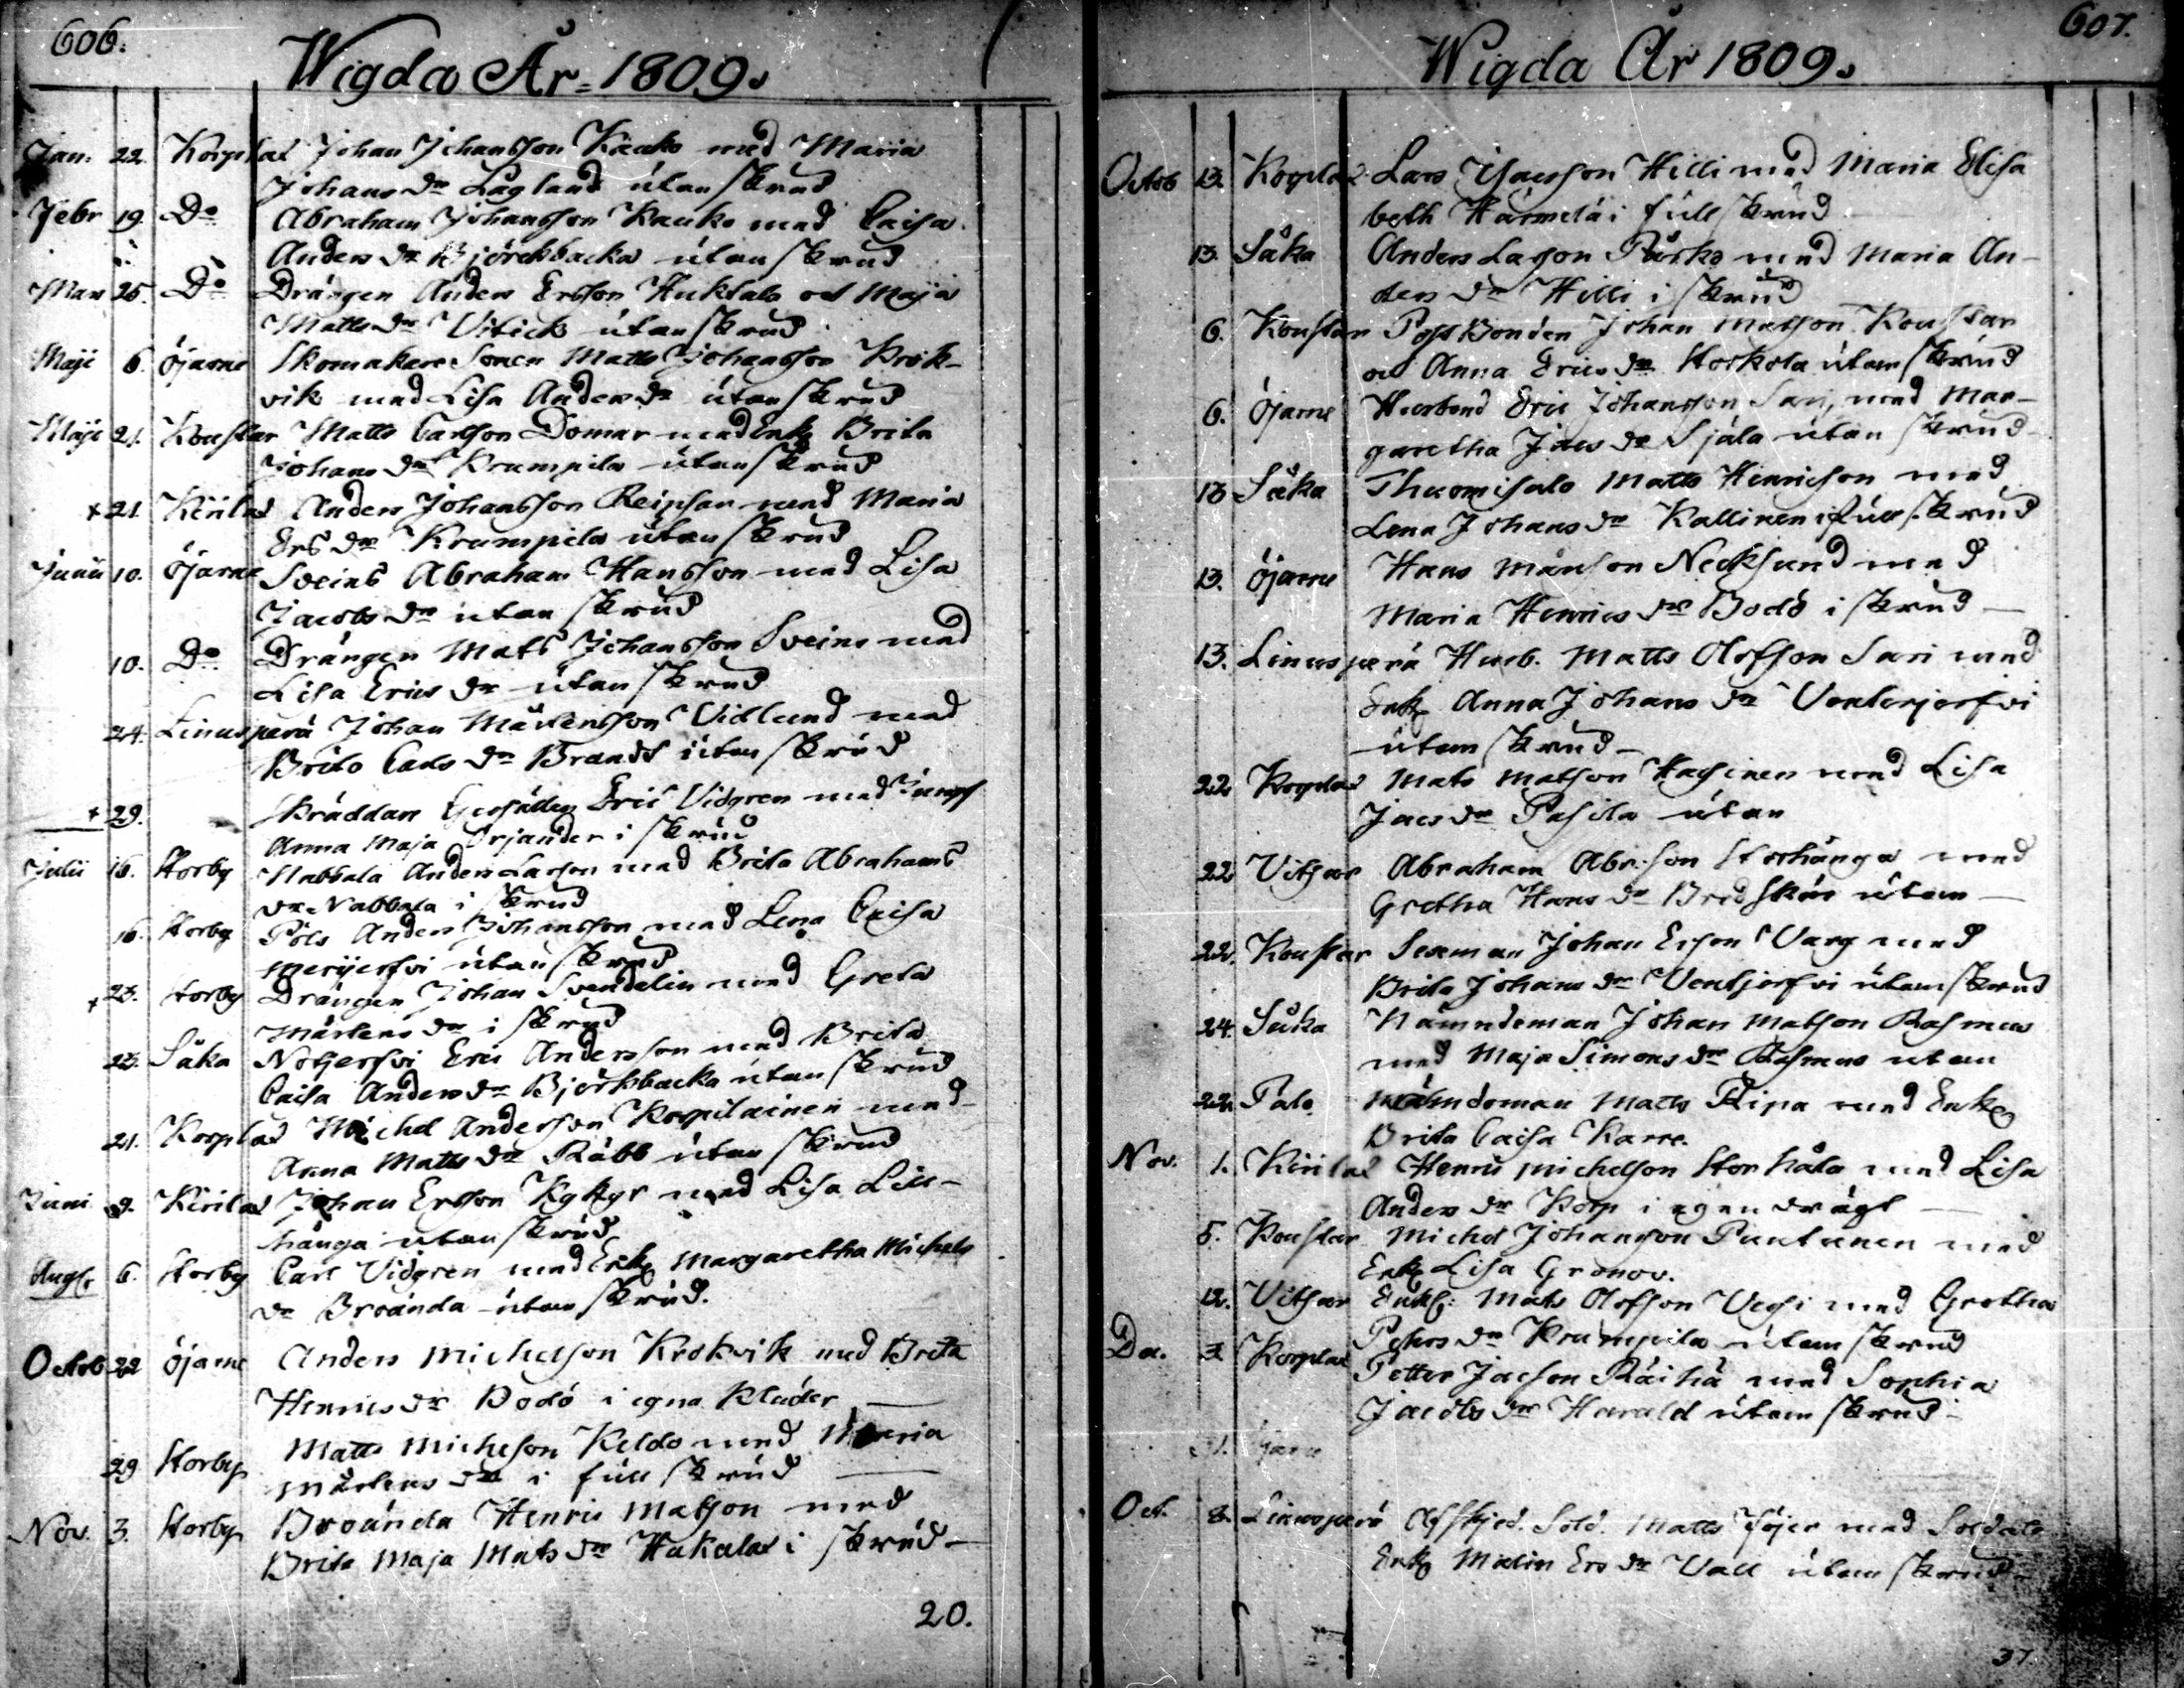 606.
Wigda År = 1809.
Jan: 22. Korplax Johan Johansson Kauko med Maria
Johans dr Lagland utan skrud
Febr 19. Do Abraham Johansson Kauko med Caisa
Anders dr Björckbacka utan skrud
Mar 25. Do Drängen Anders Ersson Huktala och Maja
Matts dr Vitick utan skrud
Maji 6. Öjarne Skomakare Sonen Matts Johansson Krok-
vik med Lisa Anders dr utan skrud
Maji 21. Kouflax Matts Carlson Domar med Enk Brita
Johans dr Krumpila utan skrud
+ 21. Kirilax Anders Johansson Reipsar med Maria
Ers dr Krumpila utan skrud
Junii 10. Öjarne Sveins Abraham Hansson med Lisa
Jacobs dr utan skrud
10. Do Drängen Mats Johansson Sveins med
Lisa Erics dr utan skrud
24. Linusperä Johan Mårtensson Vidlund med
Brita Carls dr Brandt utan skrud
+ 29. Skräddare Gesällen Eric Vidgren med Jungf
Anna Maja Orjander i skrud
Julii 16. Storby Nabbala Anders Larson med Brita Abrahams
dr Nabbala i skrud
16. Storby Pols Anders Johansson med Lena Caisa
Merijerfvi utan skrud
+ 23. Storby Drängen Johan Svendelin med Greta
Mårtens dr i skrud
23. Såka Notjerfvi Eric Andersson med Brita
Caisa Anders dr Björkbacka utan skrud
21. Korplax Michel Anderson Korpilainen med
Anna Matts dr Räbb utan skrud
Juni 9. Kirilax Johan Ersson Kykyr med Lisa Lill-
hänga utan skrud
Augt. 6. Storby Carl Vidgren med Enk Margaretha Michels
dr Broända utan skrud.
Octob 22 Öjarne Anders Michelson Krokvik med Brita
Henrics dr Bodö i egna Kläder
29 Storby Matts Michelson Keldo med Maria
Mårtens dr i full skrud
Nov. 3. Storby Broända Henric Matson med
Brita Maja Mats dr Hakala i skrud
20.
607.
Wigda År 1809.
Octob 13. Korplax Lars Isacson Hilli med Maria Elisa
beth Härmälä i full skrud
13. Såka Anders Larson Pärko med Maria An-
ders dr Hilli i skrud
6. Kouflax Post Bonden Johan Matson Kouflax
och Anna Erics dr Storkola utan skrud
6. Öjarne Husbond Eric Johansson Sari, med Mar-
garetha Jacs dr Sjåla utan skrud
13 Såka Thuomisalo Matts Henricson med
Lena Johans dr Kallinen i full skrud
13. Öjarne Hans Månson Necksund med
Maria Henrics dr Bodö i skrud
13. Linusperä Husb. Matts Olofson Sari med
Enk Anna Johans dr Venterjerfvi
utan skrud
22 Korplax Mats Matson Hassinen med Lisa
Jacs dr Pasila utan
22 Vitsar Abraham Abr:son Storhänga med
Gretha Hans dr Bredskär utan
22. Kouflax Sexman Johan Erson Varg med
Brita Johans dr Ventjerfvi utan skrud
24. Såka Nämndeman Johan Matson Rasmus
med Maja Simons dr Rasmus utan
22. Palo Nämndeman Matts Ripa med Enk
Brita Caisa Karre.
Nov. 1. Kirilax Henric Michelson Storhåla med Lisa
Anders dr Korp i egen drägt
5. Kouflax Michel Johanson Puntanen med
Enk Lisa Gronov.
12. Vitsar Enkl: Mats Olofson Vessi med Gretha
Pehrs dr Krumpila utan skrud
Dec. 3 Korplax Petter Jacson Räihä med Sophia
Jacobs dr Harald utan skrud
31. Öjarne
Oct. 8. Linusperä Afskjed. Sold. Matts Föjer med Soldats
Enk Malin Ers dr Vall utan skrud
37.